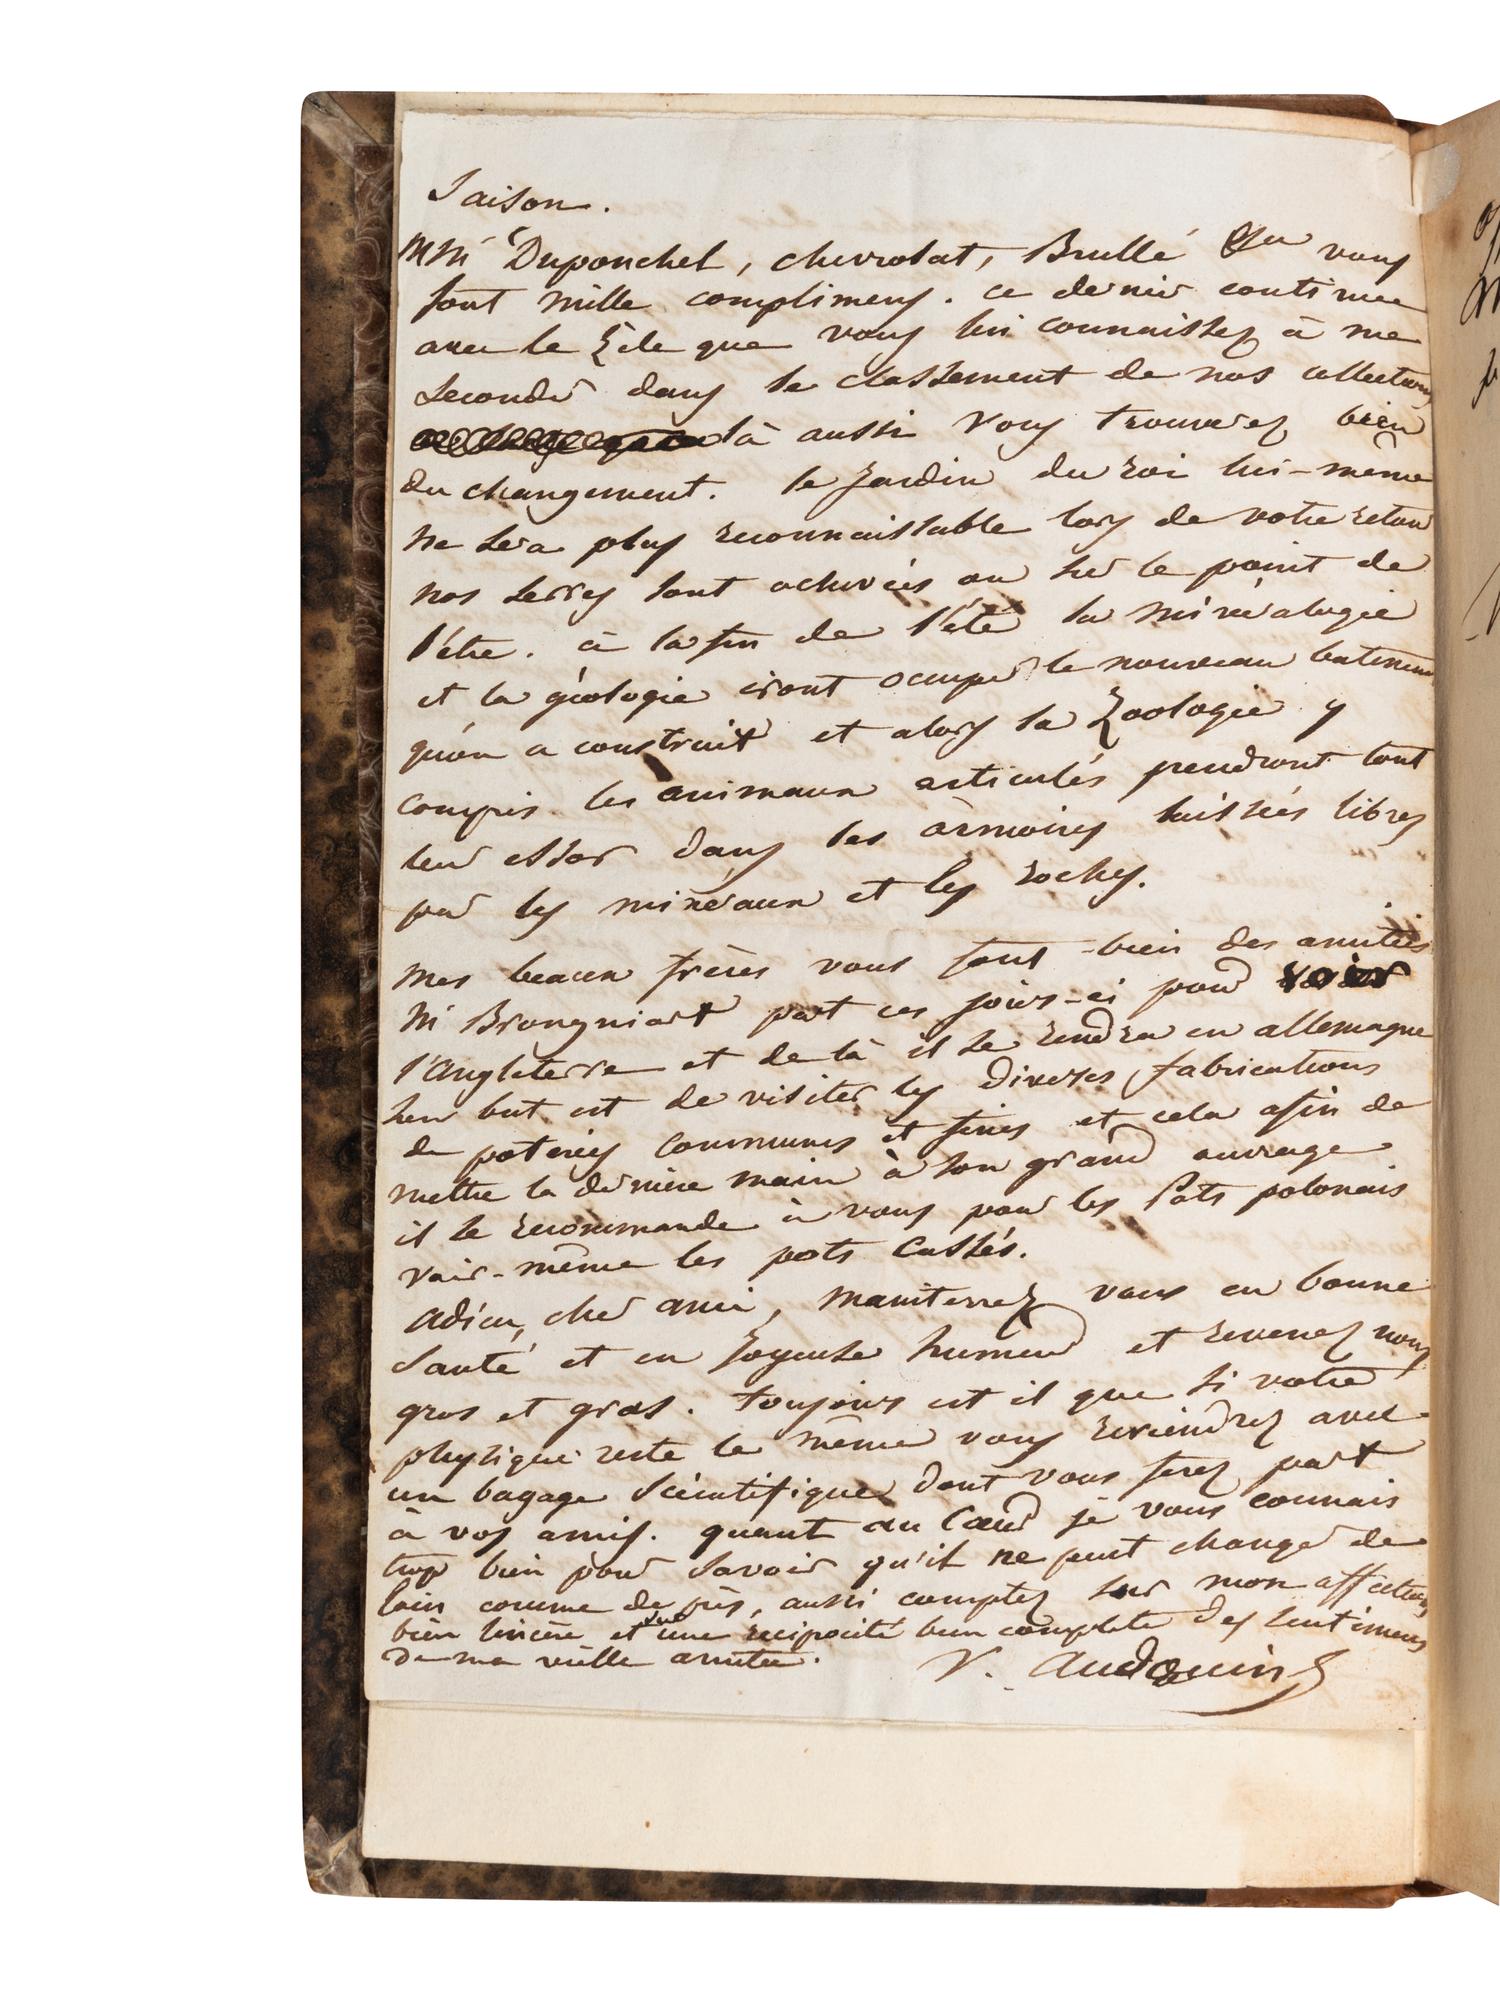 saison.
MM Duponchel, chevrolat, Brullé &a vous
font mille complimens. ce dernier continue
avec le zèle que vous lui connaissez à me
seconder dans le classement de nos collections
là aussi vous trouverez bien
du changement. le jardin du roi lui-même
ne sera plus reconnaissable lors de votre retour
nos serres sont achevées ou sur le point de
l'être. à la fin de l'été la minéralogie
et la géologie iront occuper le nouveau batiment
qu'on a construit et alors la zoologie y
compris les animaux articulés prendront tout
leur essor dans les armoires laissées libres
par les minéraux et les roches.
Mes beaux frères vous font bien des amitiés
M Brongniart part ces jours-ci pour voir
l'angleterre et de là il se rendra en allemagne
son but est de visiter les diverses fabrications
de poteries communes et fines et cela afin de
mettre la dernière main à son grand ouvrage
il se recommande à vous pour les Pots polonais
voir-même les pots cassés.
adieu, cher ami, maintenez vous en bonne
santé et en joyeuse humeur et revenez nous
gros et gras. toujours est il que si votre
physique reste le même vous reviendrez avec
un bagage scientifique dont vous ferez part
à vos amis. quant au Cœur je vous connais
trop bien pour savoir qu'il ne peut changer de
loin comme de près, aussi comptez sur mon affection
bien sincère et une réciprocité bien complète des sentimens
de ma vieille amitié.
V. Audouin